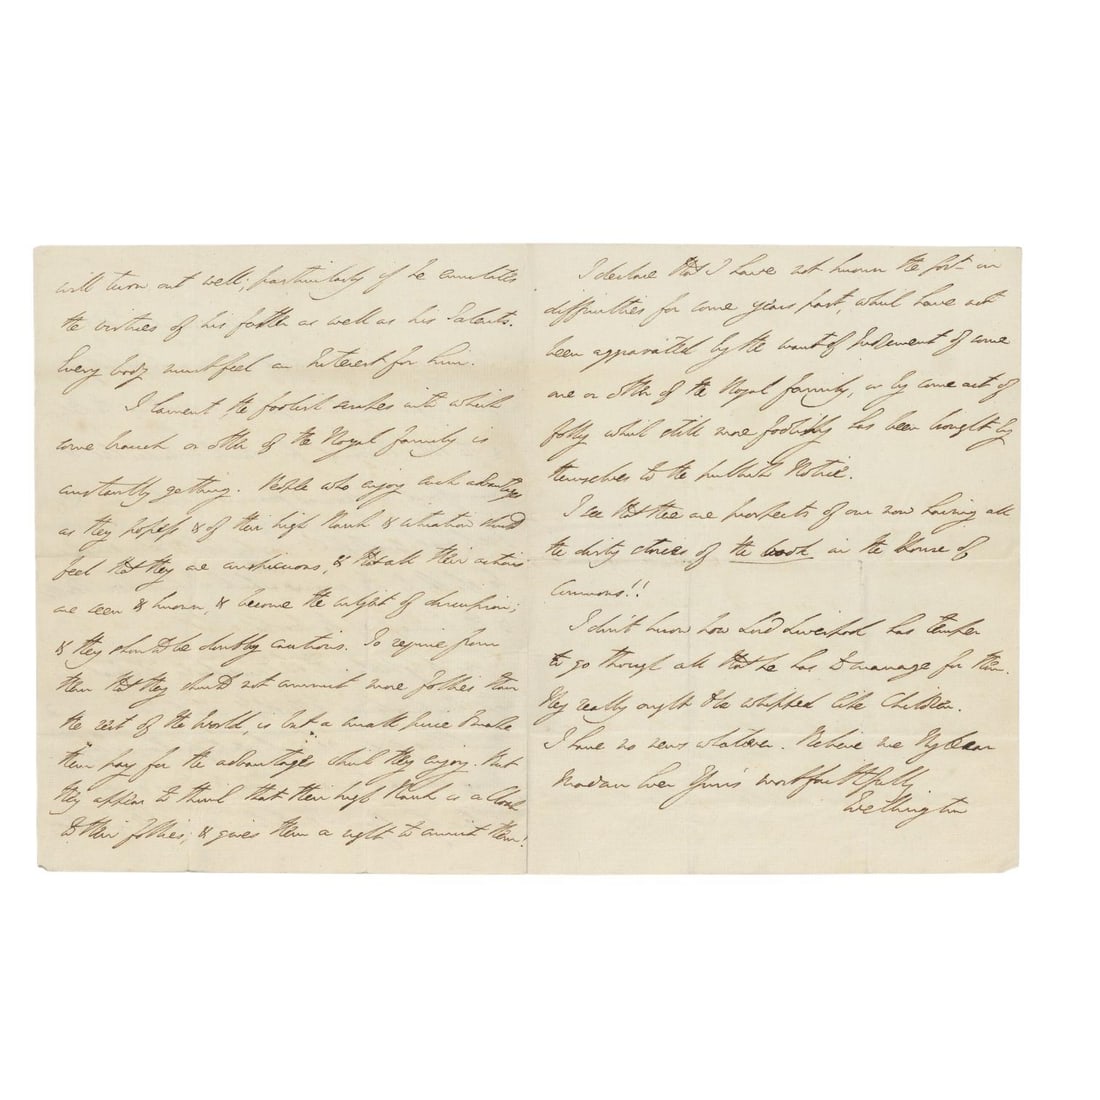 will turn out well; particularly if he emulates
the virtues of his father as well as his Talents.
Every body must feel an Interest for him.
I lament the foolish scrapes into which
some branch or other of the Royal family is
constantly getting. People who enjoy such advantages
as they possess & of their high Rank & situation should
feel that they are conspicuous, & that all their actions
are seen & known, & become the subject of discussion;
& they should be doubly cautious. To require from
them that they should not commit more follies than
the rest of the World, is but a small price to make
them pay for the advantages which they enjoy. But
they appear to think that their high Rank is a Cloak
to their follies, & gives them a right to commit them!
I declare that I have not known the Govt in
difficulties for some years past, which have not
been aggravated by the want of Judgement of some
one or other of the Royal Family, or by some act of
folly which still more foolishly has been brought by
themselves to the publick Notice.
I see that there are prospects of our now having all
the dirty stories of the book in the House of
Commons!!
I don't know how Lord Liverpool has temper
to go through all that he has to manage for them.
They really ought to be whipped like Children.
I have no news whatever. Believe me My dear
Madam Ever Yours most faithfully
Wellington